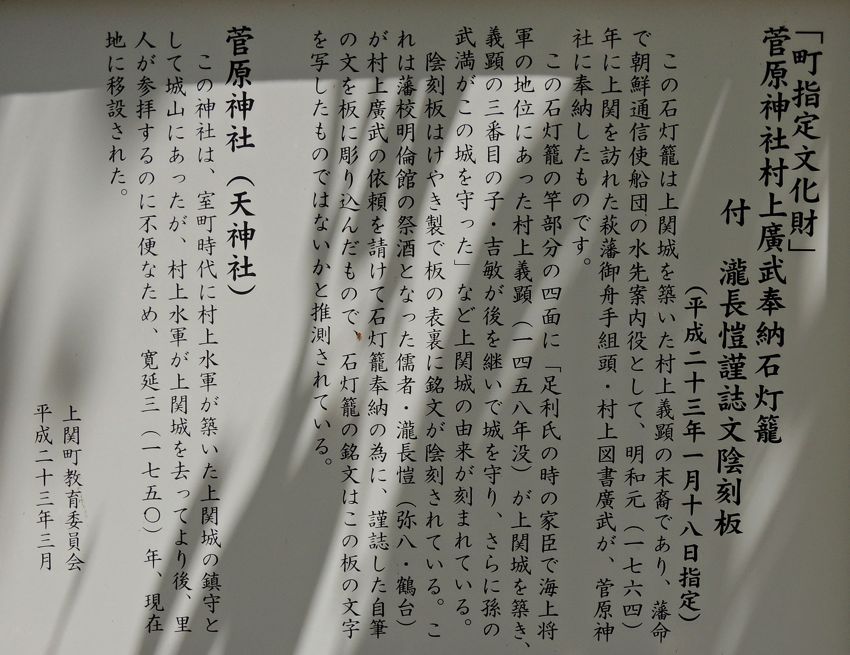 「町指定文化財」
菅原神社村上廣武奉納石灯籠
付　瀧長愷謹誌文陰刻板
（平成二十三年一月十八日指定）
この石灯籠は上関城を築いた村上義顕の末裔であり、藩命
で朝鮮通信使船団の水先案内役として、明和元（一七六四）
年に上関を訪れた萩藩御舟手組頭・村上図書廣武が、菅原神
社に奉納したものです。
この石灯籠の竿部分の四面に「足利氏の時の家臣で海上将
軍の地位にあった村上義顕（一四五八年没）が上関城を築き、
義顕の三番目の子・吉敏が後を継いで城を守り、さらに孫の
武満がこの城を守った」など上関城の由来が刻まれている。
陰刻板はけやき製で板の表裏に銘文が陰刻されている。こ
れは藩校明倫館の祭酒となった儒者・瀧長愷（弥八・鶴台）
が村上廣武の依頼を請けて石灯籠奉納の為に、謹誌した自筆
の文を板に彫り込んだもので、石灯籠の銘文はこの板の文字
を写したものではないかと推測されている。
菅原神社（天神社）
この神社は、室町時代に村上水軍が築いた上関城の鎮守と
して城山にあったが、村上水軍が上関城を去ってより後、里
人が参拝するのに不便なため、寛延三（一七五〇）年、現在
地に移設された。
上関町教育委員会
平成二十三年三月